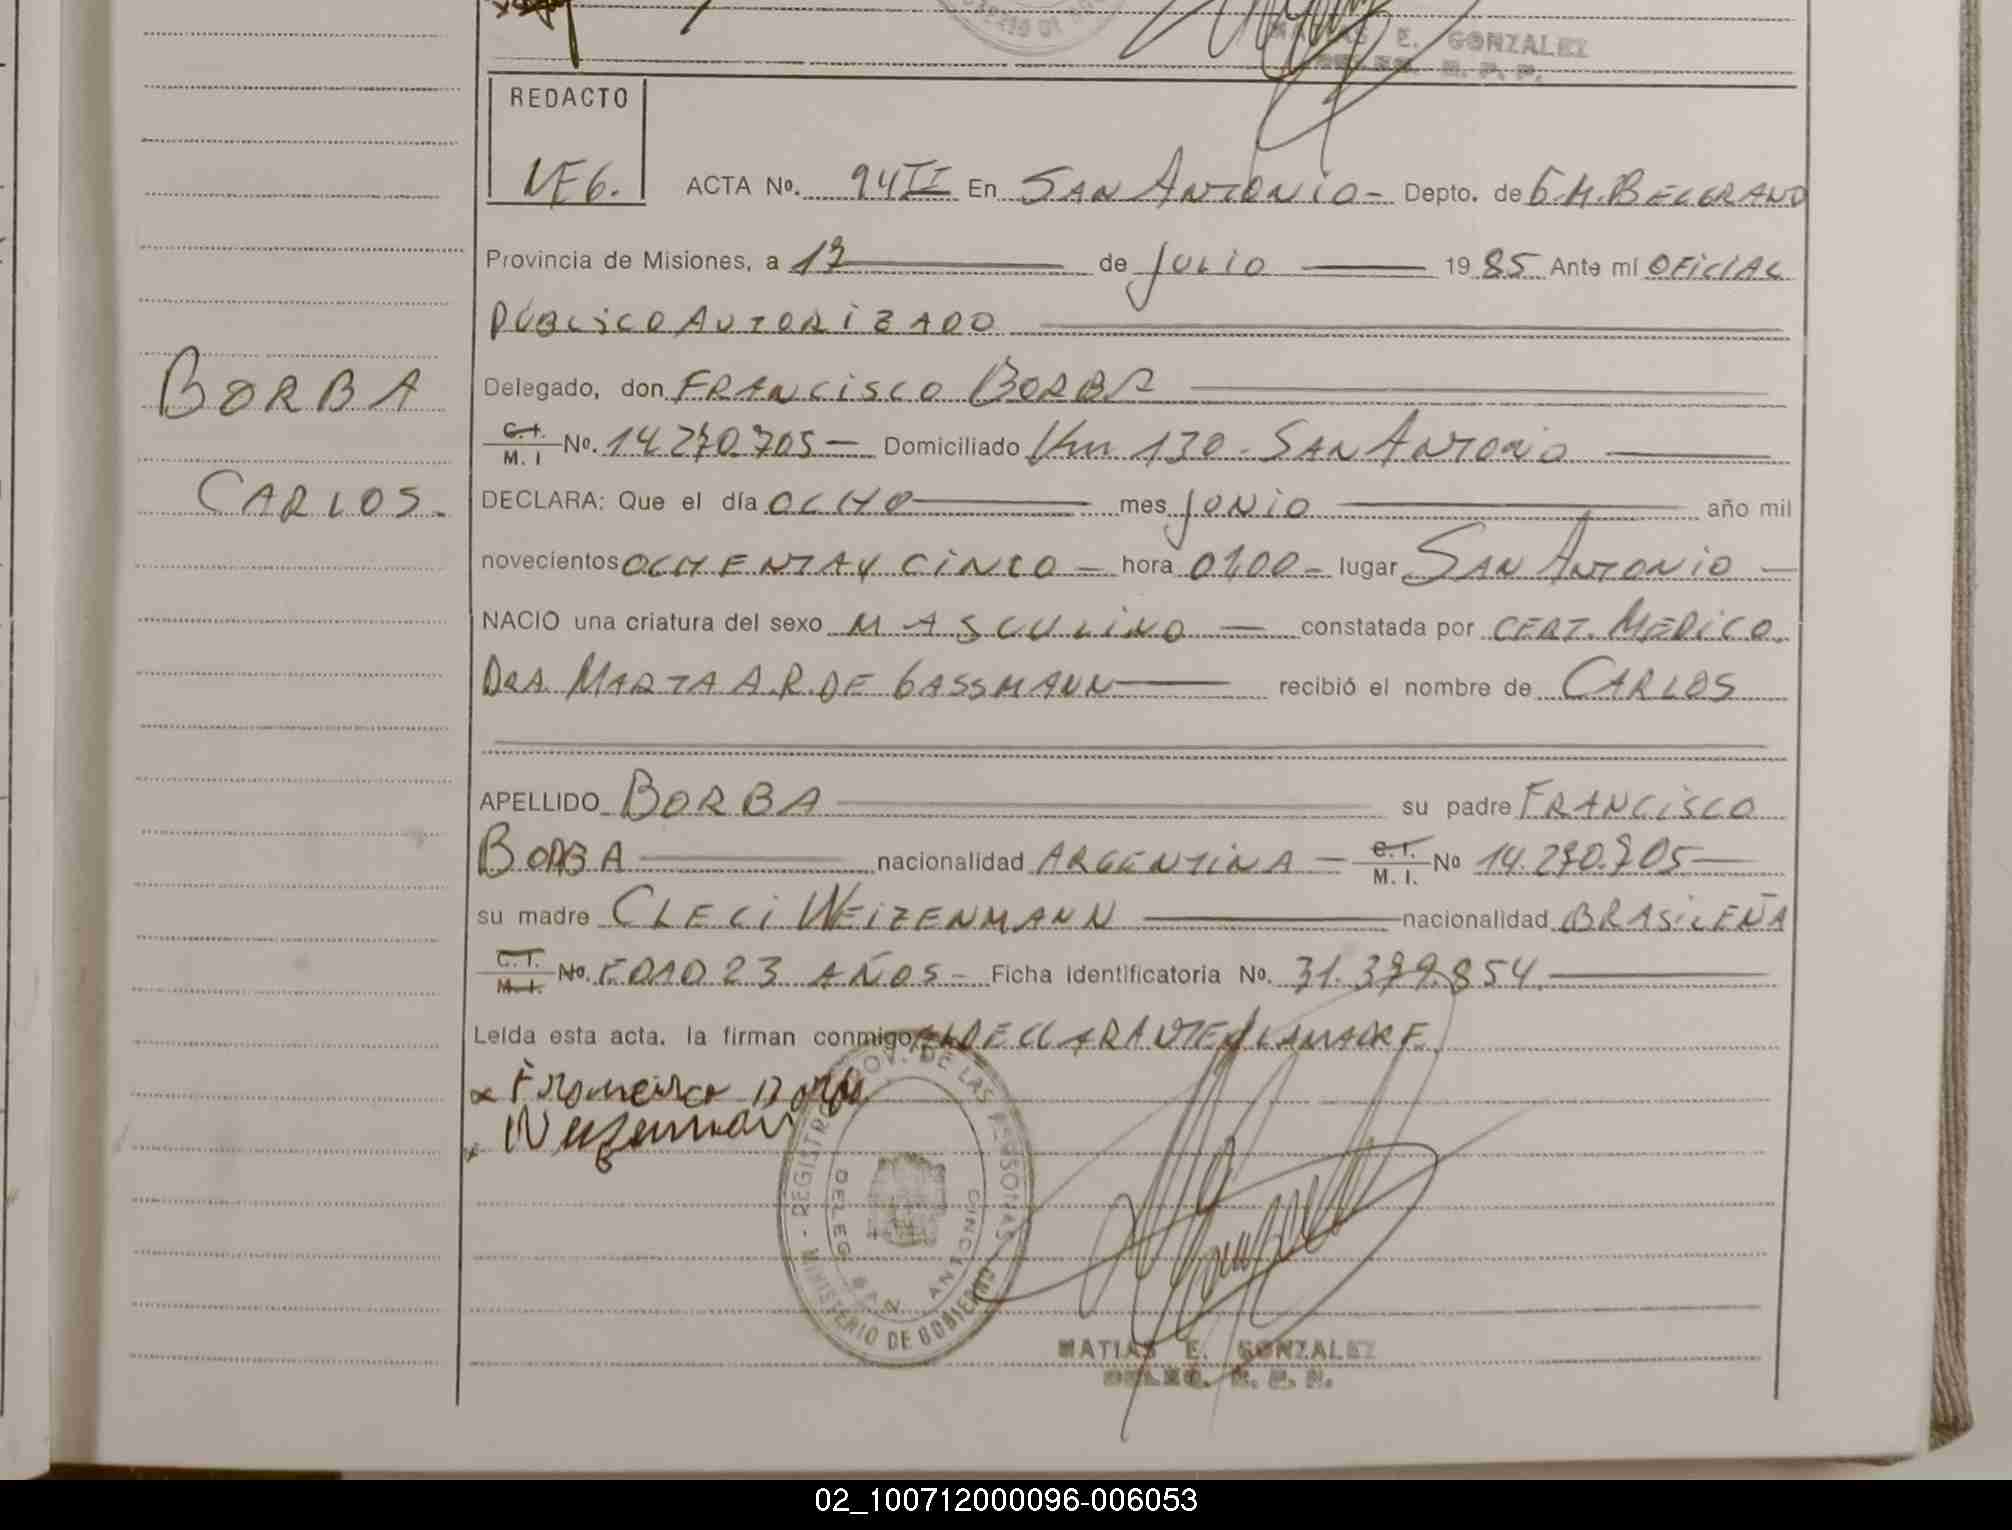 MATIAS E. GONZALEZ
DELEG. R. P. P.
REDACTO
ACTA Nº. 94 II En SAN ANTONIO - Depto. de G.M. BELGRANO
Provincia de Misiones, a de JULIO 19 85 Ante mí OFICIAL
PÚBLICO AUTORIZADO
Delegado, don FRANCISCO BORBA
C.I. M. I Nº. 14.270.705 - Domiciliado Km 130 - SAN ANTONIO
DECLARA: Que el día OCHO mes JUNIO año mil
novecientos OCHENTA Y CINCO - hora lugar SAN ANTONIO -
NACIO una criatura del sexo MASCULINO - constatada por CERT. MEDICO.
DRA. MARTA A. R. DE GASSMANN recibió el nombre de CARLOS
APELLIDO BORBA su padre FRANCISCO
BORBA nacionalidad ARGENTINA - C.I. M. I. Nº 14.270.705
su madre CLECI WEIZENMANN nacionalidad BRASILEÑA
C.I. M.I. Nº. EDAD 23 AÑOS - Ficha Identificatoria No. 31.379.854.
Leída esta acta, la firman conmigo EL DECLARANTE Y LA MADRE.
Francisco Borba
Weizenman
REGISTRO PROV. DE LAS PERSONAS
MINISTERIO DE GOBIERNO
DELEG. SAN ANTONIO
MATIAS E. GONZALEZ
DELEG. R. P. P.
BORBA
CARLOS.
02_100712000096-006053